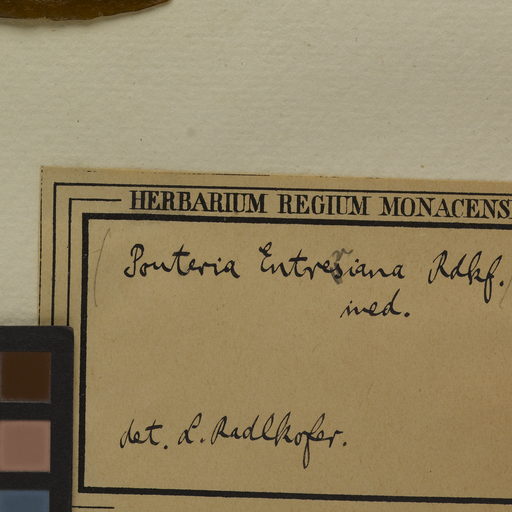 HERBARIUM REGIUM MONACENS
(Pouteria Entresiana Rdkf.)
ined.
det. L. Radlkofer.